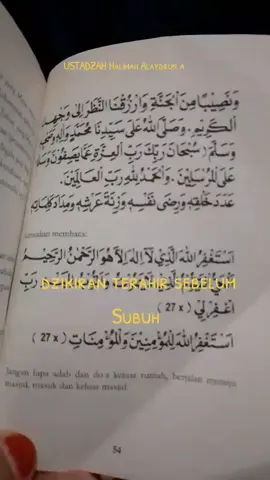 USTADZAH HALIMAH ALAYDRUS
وَنَصِيْبًا مِنَ الْجَنَّةِ وَارْزُقْنَا النَّظَرَ إِلَى وَجْهِكَ
الْكَرِيْمِ. وَصَلَّى اللهُ عَلَى سَيِّدِنَا مُحَمَّدٍ وَآلِهِ وَصَحْبِهِ
وَسَلَّمَ (سُبْحَانَ رَبِّكَ رَبِّ الْعِزَّةِ عَمَّا يَصِفُوْنَ وَسَلَامٌ
عَلَى الْمُرْسَلِيْنَ. وَالْحَمْدُ لِلّٰهِ رَبِّ الْعَالَمِيْنَ.
عَدَدَ خَلْقِهِ وَرِضَى نَفْسِهِ وَزِنَةَ عَرْشِهِ وَمِدَادَ كَلِمَاتِهِ
membaca:
اَسْتَغْفِرُ اللهَ الَّذِيْ لَا إِلٰهَ إِلَّا هُوَ الرَّحْمٰنُ الرَّحِيْمُ
رَبِّ
DZIKIRAN TERAHIR SEBELUM
SUBUH
اغْفِرْ لِيْ ( 27 x )
اَسْتَغْفِرُ اللهَ لِلْمُؤْمِنِيْنَ وَالْمُؤْمِنَاتِ ( 27 x )
Jangan lupa adab dan do'a keluar rumah, berjalan menuju
masjid, masuk dan keluar masjid
54